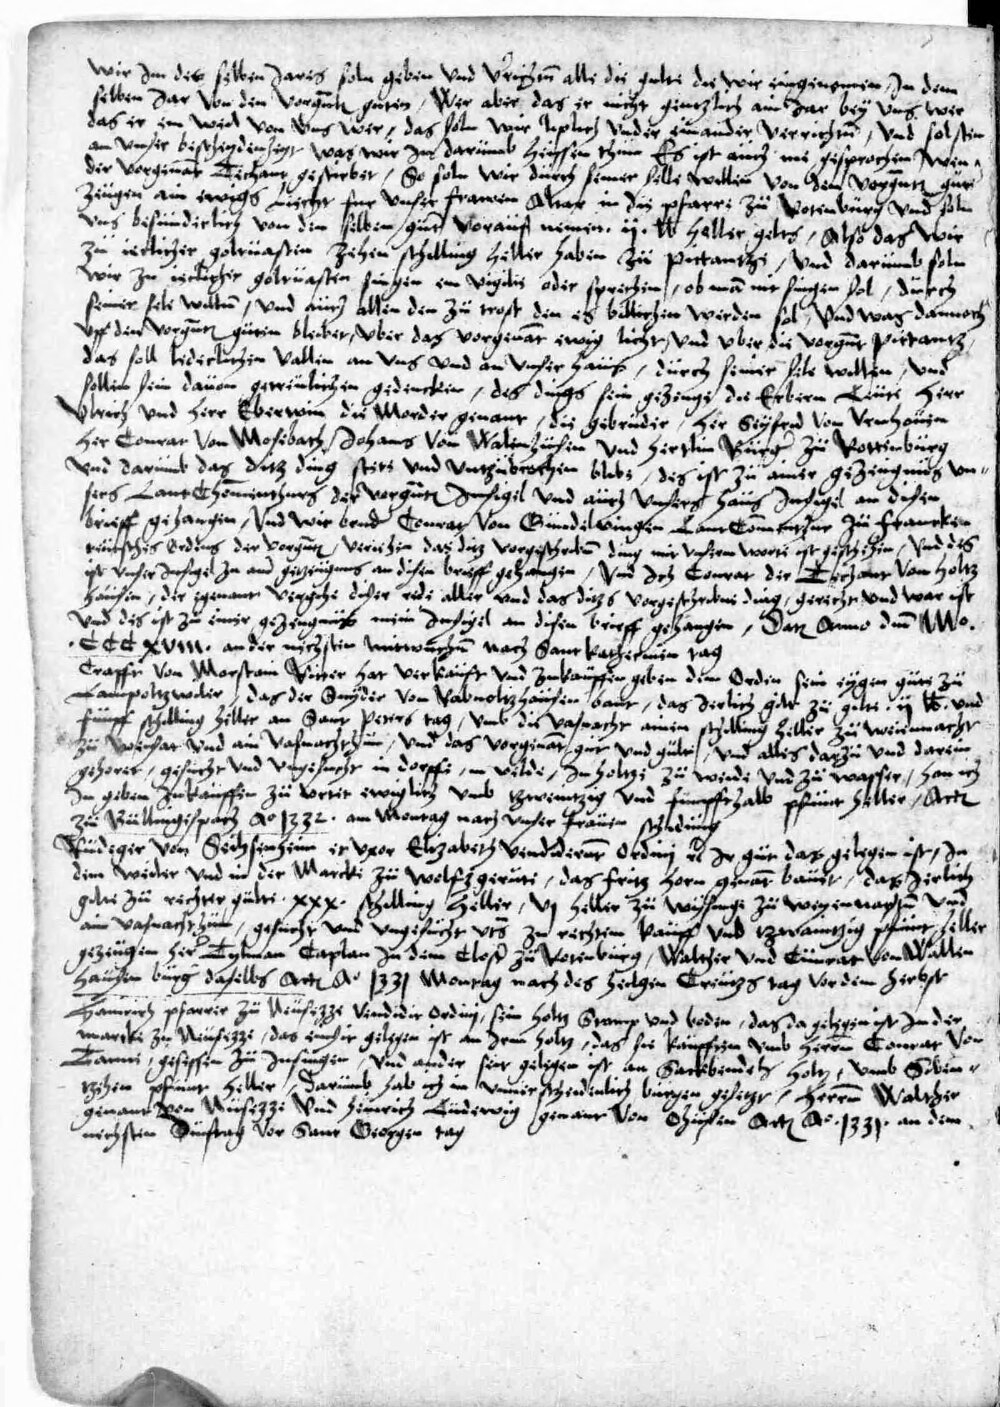 Wir Jm des selben Jares soln geben vnd v̈richtn̄ alle die gulte die wir eingenomen, Jn dem
selben Jar von den vorgn̄tn̄ guten, Wer aber das er nicht gentzlich ain Jar bey vns wer
das er ein weil von vns wer, das soln wir liplich vnder einander verrichtn̄, vnd sol sten
an vnser bescheidenheyt was wir Jm darumb heissen thun Es ist auch me gesprochen, Wen
der vorgenāt Techant gestirbet, So soln wir durch seiner selle willen von den vorgn̄tn̄ guten
zeugen ain ewigs Liecht fur vnser frawen Altar in die pfarre zu Rotenburg vnd soln
vns besunderlich von dem selben gut vorauß nemen . ij . lb heller gelts, Also das wir
zu ieclicher goltuasten zehen schilling heller haben zu pittantze, vnd darumb soln
wir zu ieclicher goltuasten singen ein vigilie oder sprechen, ob mā nit singen sol, durch
seiner sele willen, vnd auch allen den zu trost den es billichen werden sol, Vnd was dannoch
vff den vorgn̄tn̄ guten bleibet, vber das vorgenāt ewig licht, vnd vber die vorgn̄t pittantz,
das soll lediclichen vallen an vns vnd an vnser hauß, durch seiner sele willen, vnd
sollen sein dauon getreulichen gedencken, des dings sein gezeuge die Erbern Leute herr
Vlrich vnd herr Eberwin die Morder genant, die gebruder, her Seyfrid von Vrnhouen
her Conrat von Mosebach, Johans von Walmhusen vnd hertlin Burgr zu Rottenburg
vnd darumb das ditz ding stete vnd vntzubrochen blibe, des ist zu ainer gezeugnus vn=
sers LantComenthurs der vorgn̄tn̄ Jnsigel vnd auch vnsers hauß Jnsigel an disen
brieff gehangen, Vnd wir brud̄ Conrat von Gundelvingen LantComēthur zu francken
teutsches Ordens der vorgn̄t, veriehen das ditz vorgeschribn̄ ding mit vnserm wort ist geschehen, vnd des
ist vnser Jnsigel zu aim gezeugnus an disen brieff gehangen, Vnd Jch Conrat der Techant von Holtz
hausen, der egenant vergihe diser rede aller vnd das ditzs vorgeschribene ding, gerecht vnd war ist
vnd des ist zu einer gezeugnuß mein Jnsigel an disen brieff gehangen, Datū Anno dnī M°.
. CCC XVIII . an der nechsten mitwuchn̄ nach Sant katherinen tag
Craffte von Morstain Ritter hat verkaufft vnd zukauffen geben dem Orden sein eygen gute zu
Lampoltzweiler, das der Snyder von Rabnoltzhausen bawt, das Jerlich gilt zu gulte . ij lb . vnd
funff schilling heller an Sant Peters tag, vmb die vasnacht ainen schilling heller zu weinnacht
zu weisat vnd ain vasnachthun, vnd das vorgenāt gut vnd gulte, vnd alles darzu vnd darein
gehoret, gesucht vnd vngesucht in dorffe, in velde, in holtze zu weide vnd zu wasser, han ich
Jn geben zukauffen zu vrtet ewiglich vmb tzweintzig vnd funffthalb pfunt heller, Actū
zu Bullingespach Ao 1332 . am Montag nach vnser frauen schidung
Rudeger von Sechssenheim et vxor Elizabeth vendiderūt Ordinj &c Jr gut das gelegen ist, Jn
dem weiler vnd in der Marcke zu wolfzgerute, das fritz horn genāt bawet, das Jerlich
gilte zu rechter gulte . XXX . schilling heller, vj heller zu wysunge zu weyenachtn̄ vnd
ain vasnachthun, gesucht vnd vngesucht vts̄ zu rechtem kauff vmb tzwaintzig pfunt heller
gezeugen her Tylman Caplan Jn dem Closr̄ zu Rotenburg, Walther vnd Cunrat von Wallen
hausen burgr̄ daselbs Actū Ao 1331 Montag nach des heilgen Creutzs tag vor dem herbst
Hainrich pfarrer zu Neusezze vendidit Ordinj, sein holtz Stamp vnd boden, das da gelegen ist Jn der
marcke zu Neusezze, das einsit gelegen ist an Jrm holtz, das sie kaufften vmb herrn̄ Conrat von
Tanne, gesessen zu Jnsingen, vnd ander seit gelegen ist an Sackbendels holtz, vmb Siben=
tzehen pfunt heller, darumb hab ich in vnuerscheidenlich burgen gesetzt, herrn̄ Walther
genant von Neusezze vnd Hinrich Ludewig genant von Ohusen Actū Ao . 1331 . an dem
nechsten Dinstag vor Sant Georgen tag